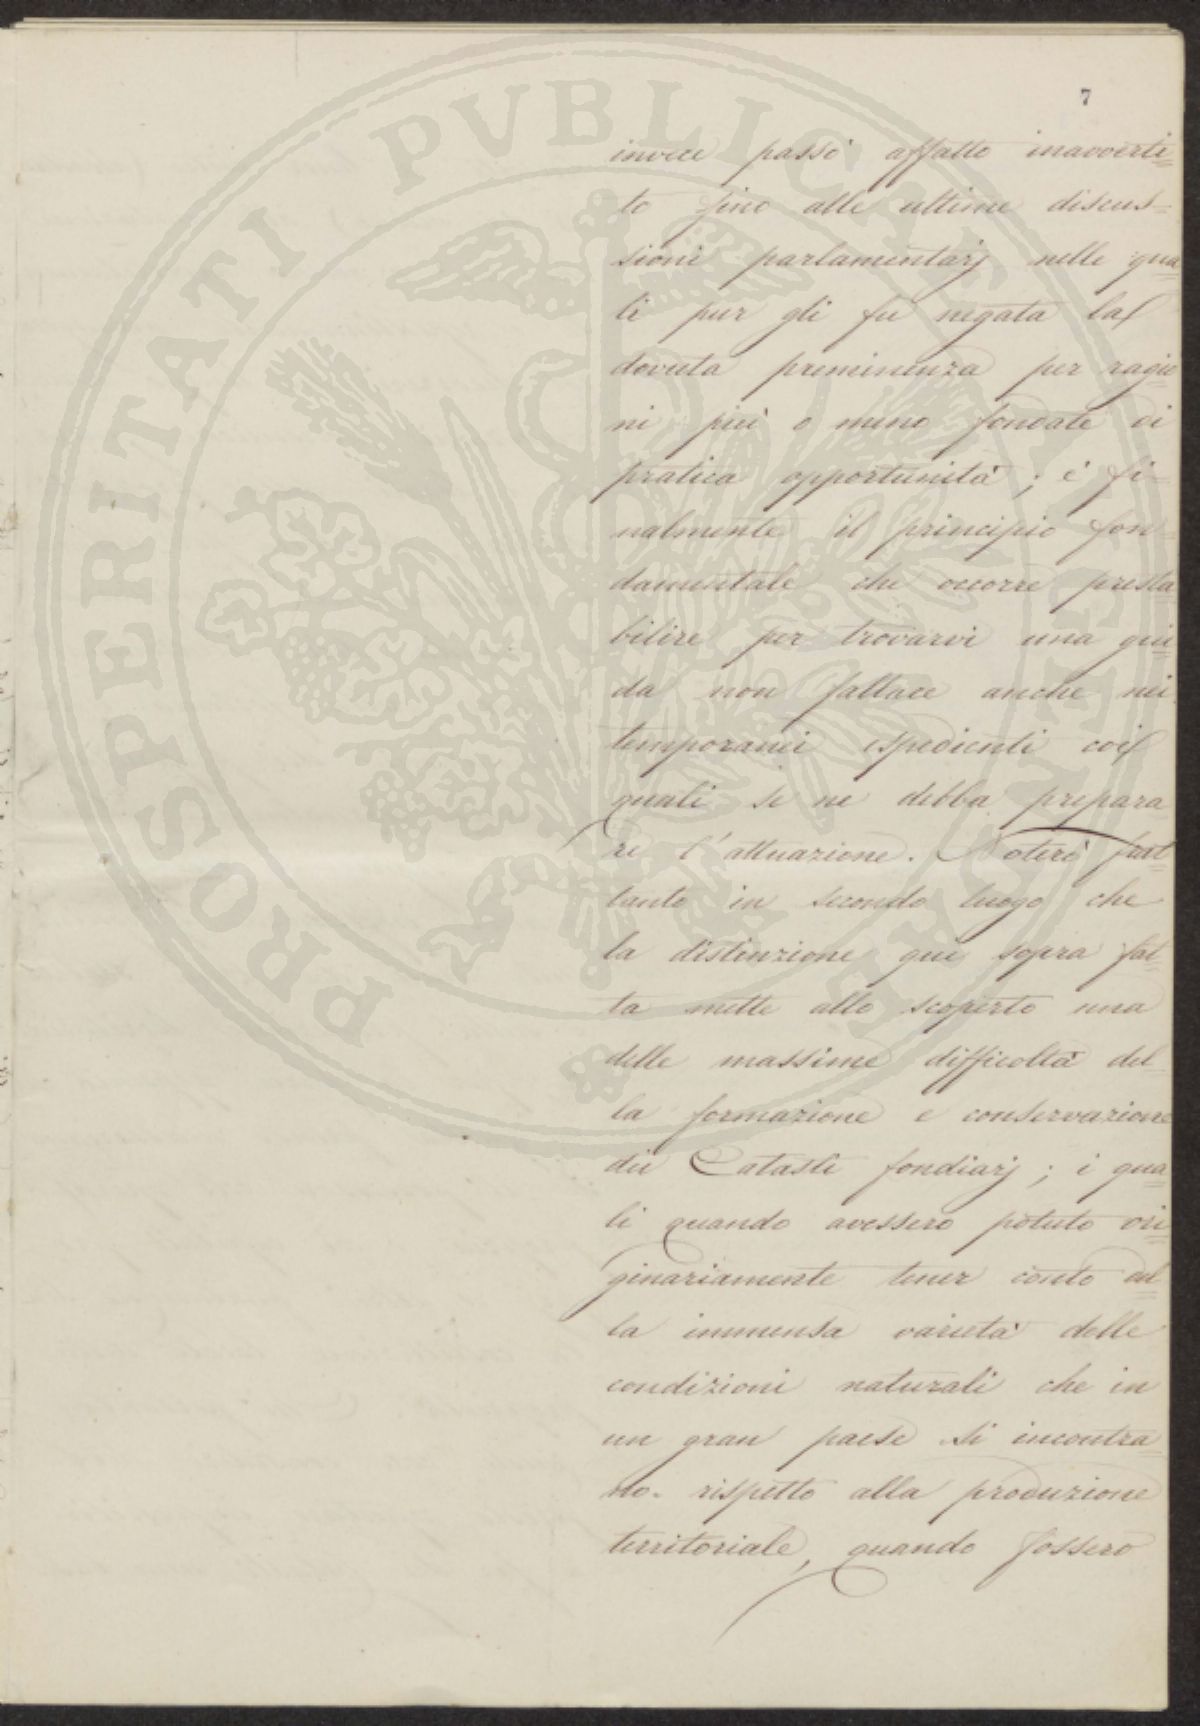 PROSPERITATI PVBLICAE AVGENDAE
7
invece passò affatto inavverti=
to fino alle ultime discus=
sioni parlamentarj nelle qua=
li pur gli fu negata la
dovuta preminenza per ragio=
ni più o meno fondate di
pratica opportunità; è fi=
nalmente il principio fon=
damentale che occorre presta=
bilire per trovarvi una gui=
da non fallace anche nei
temporanei espedienti coi
quali se ne debba prepara=
re l'attuazione. Noterò frat=
tanto in secondo luogo che
la distinzione qui sopra fat=
ta mette allo scoperto una
delle massime difficoltà del=
la formazione e conservazione
dei Catasti fondiarj; i qua=
li quando avessero potuto ori=
ginariamente tener conto del=
la immensa varietà delle
condizioni naturali che in
un gran paese si incontra=
no. rispetto alla produzione
territoriale, quando fossero